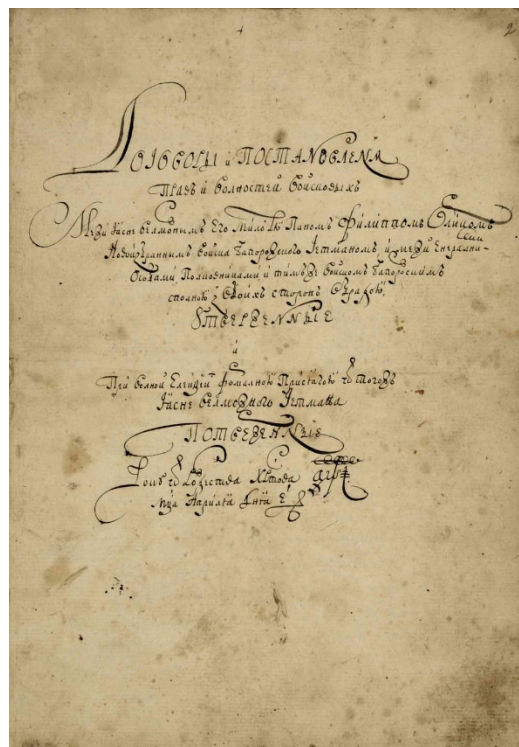 2
ДОГОВОРЫ И ПОСТАНОВЛЕНѦ
Правъ и волностей войсковыхъ
Межи Ясне велможнымъ Его Милостю Паномъ Филиппомъ Орликомъ
Новоизбраннымъ войска Запорожского Гетманомъ, и межи Енералними
Особами, Полковниками и тимъ же войскомъ Запорозскимъ
сполною з обоихъ сторонъ обрадою,
ѸТВЕРЖЕННЫЕ
и
При волной Елекціи формалною Присягою ѿ тогожъ
Ясне велможного Гетмана
ПОТВЕРЖЕННЫЕ
Року ѿ Рождества Христова ҂аѱі
Мца Априлѧ дня є҃